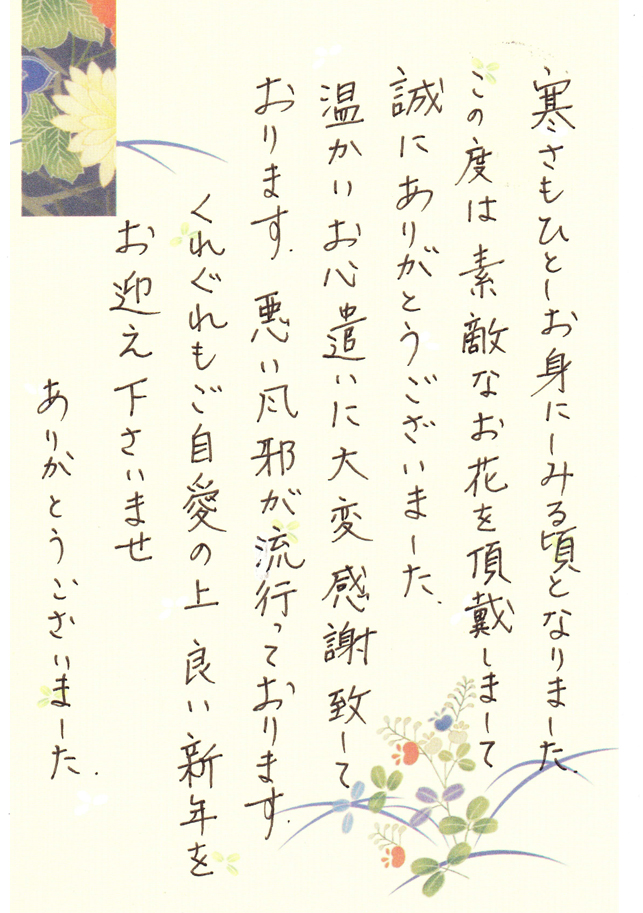 寒さもひとしお身にしみる頃となりました.
この度は素敵なお花を頂戴しまして
誠にありがとうございました.
温かいお心遣いに大変感謝致して
おります. 悪い風邪が流行っております.
くれぐれもご自愛の上 良い新年を
お迎え下さいませ
ありがとうございました.